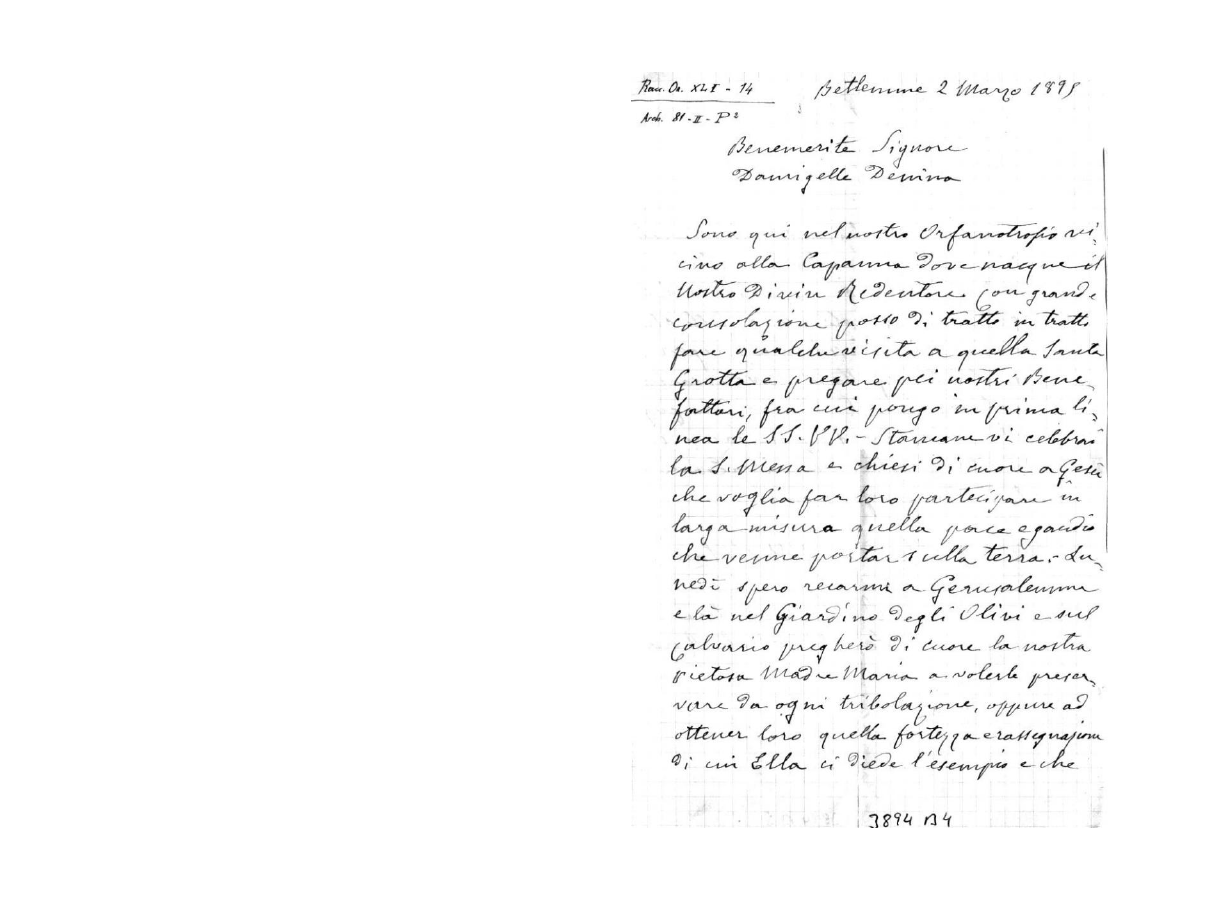 Racc. Or. XLI - 14
Arch. 81 - II - P²
Betlemme 2 Marzo 1895
Benemerite Signore
Damigelle Denina
Sono qui nel nostro Orfanotrofio vi-
cino alla Capanna dove nacque il
Nostro Divin Redentore. Con grande
consolazione posso di tratto in tratto
fare qualche visita a quella Santa
Grotta e pregare pei nostri Bene-
fattori, fra cui pongo in prima li-
nea le SS. VV. - Stamane vi celebrai
la S. Messa e chiesi di cuore a Gesù
che voglia far loro partecipare in
larga misura quella pace e gaudio
che venne portar sulla terra. - Lu-
nedì spero recarmi a Gerusalemme
e là nel Giardino degli Olivi e sul
Calvario pregherò di cuore la nostra
pietosa Madre Maria a volerle preser-
vare da ogni tribolazione, oppure ad
ottener loro quella fortezza e rassegnazione
di cui Ella ci diede l'esempio e che
3894 B4